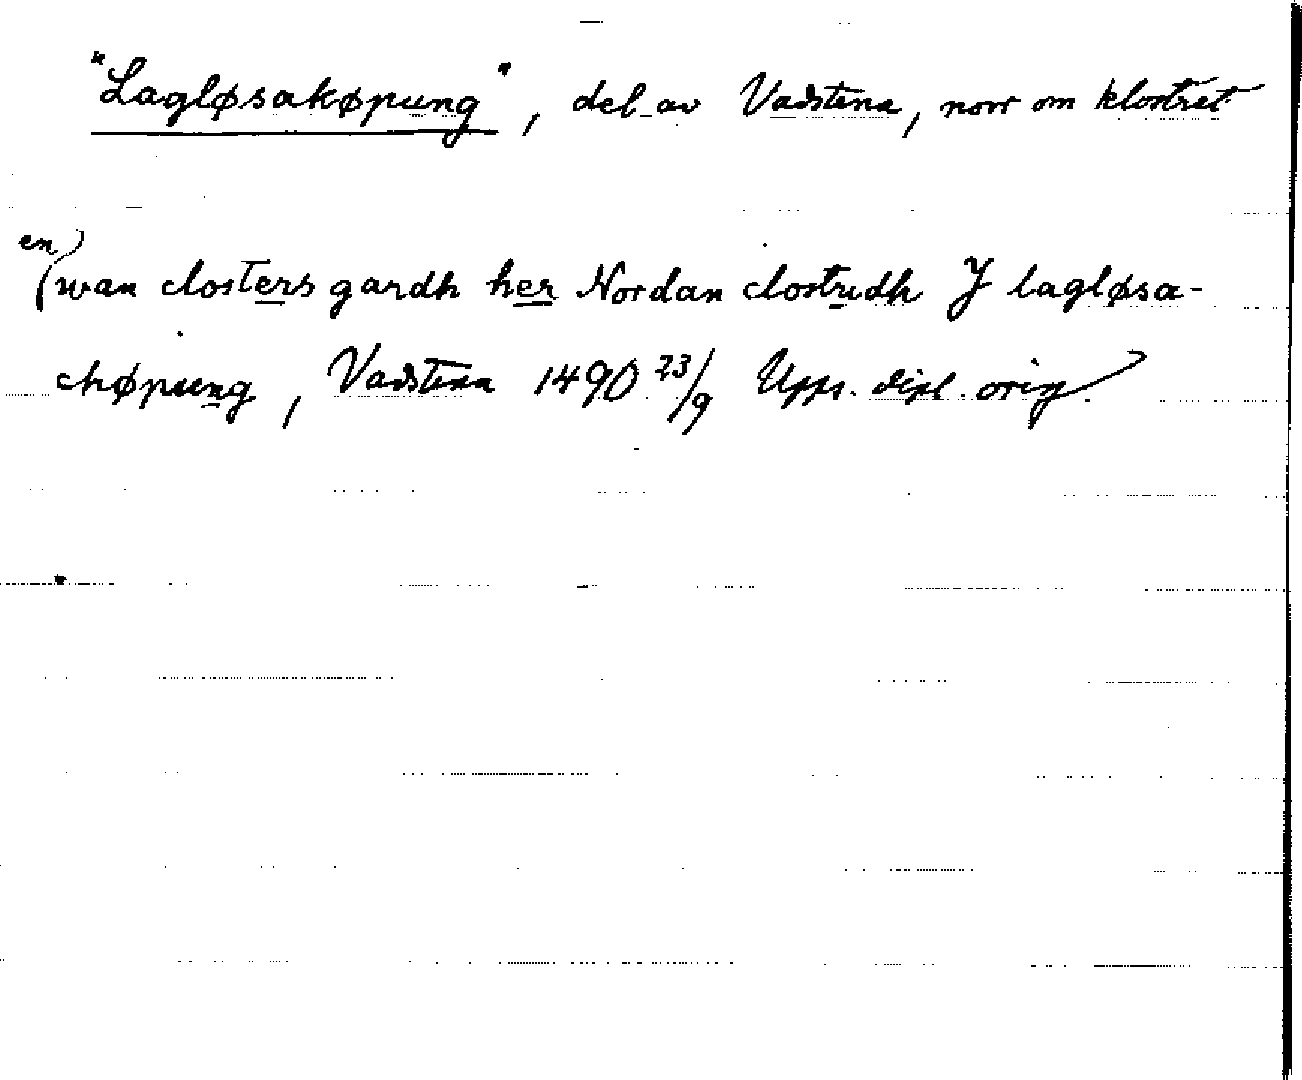 "Lagløsakøpung", del av Vadstena, norr om klostret
en) (wan closters gardh her Nordan clostridh J lagløsa-
chøpung, Vadstena 1490 23/9 Upps. dipl. orig.